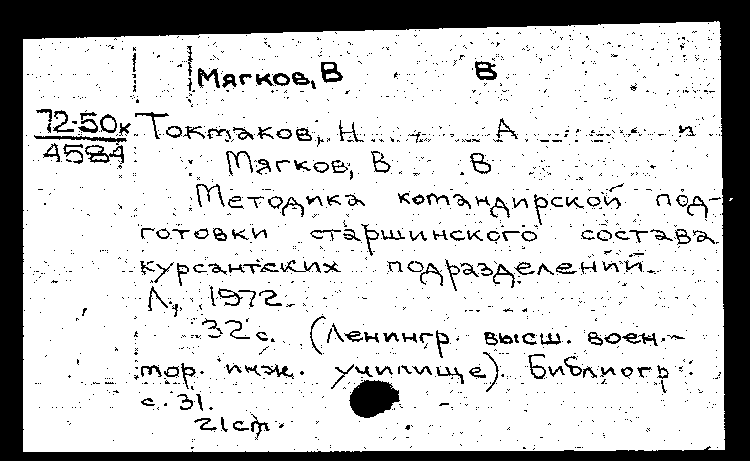 Мягков, В В
72-50к
4584
Токмаков, Н А и
Мягков, В В
Методика командирской под-
готовки старшинского состава
курсантских подразделений.
Л., 1972.
32 с. (Ленингр. высш. воен.-
мор. инж. училище). Библиогр.:
с. 31.
21 cm.